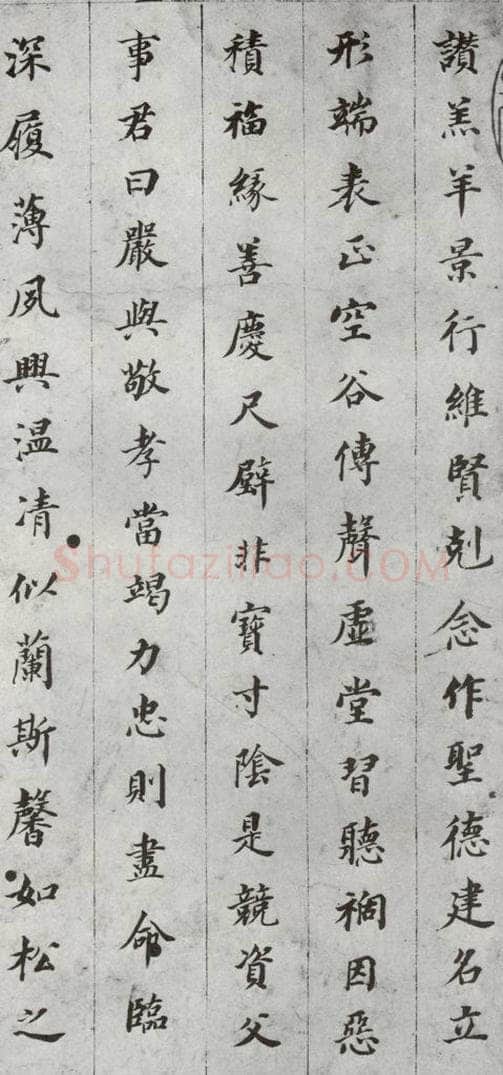 讃羔羊景行維賢剋念作聖德建名立
形端表正空谷傳聲虛堂習聽禍因惡
積福緣善慶尺璧非寶寸陰是競資父
事君曰嚴與敬孝當竭力忠則盡命臨
深履薄夙興温凊似蘭斯馨如松之
Shufaziliao.COM